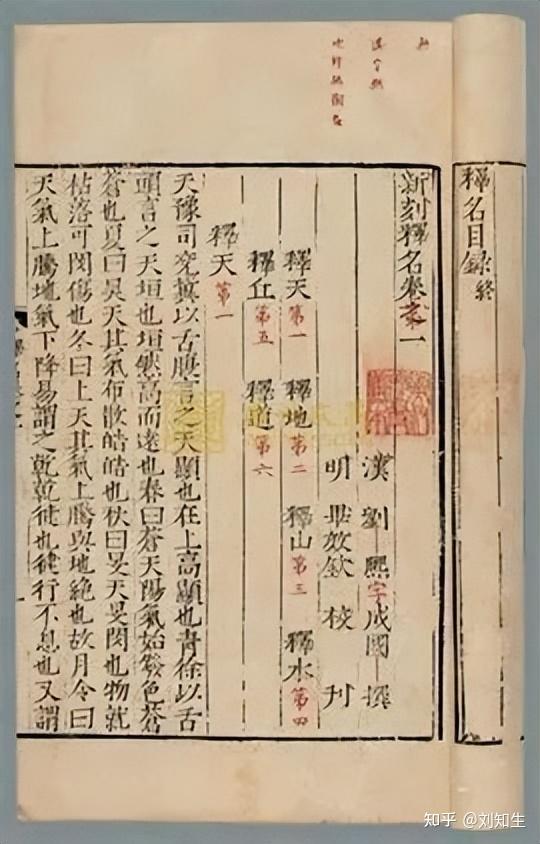 釋名目録終
新刻釋名卷之一
漢 劉 熙字成國 撰
明 畢效欽 校 刊
釋天第一 釋地第二 釋山第三 釋水第四
釋丘第五 釋道第六
釋天第一
天豫司兖冀以舌腹言之天顯也在上高顯也青徐以舌
頭言之天垣也垣然高而遠也春曰蒼天陽氣始發色蒼
蒼也夏曰昊天其氣布散皓皓也秋曰旻天旻閔也物就
枯落可閔傷也冬曰上天其氣上騰與地絶也故月令曰
天氣上騰地氣下降易謂之乾乾健也健行不息也又謂
知乎 @刘知生